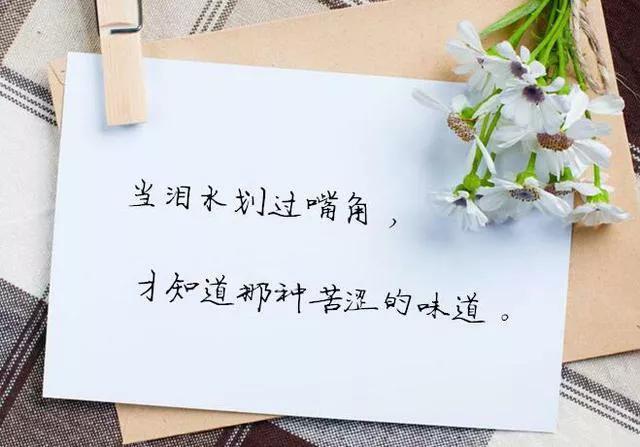 当泪水划过嘴角，
才知道那种苦涩的味道。